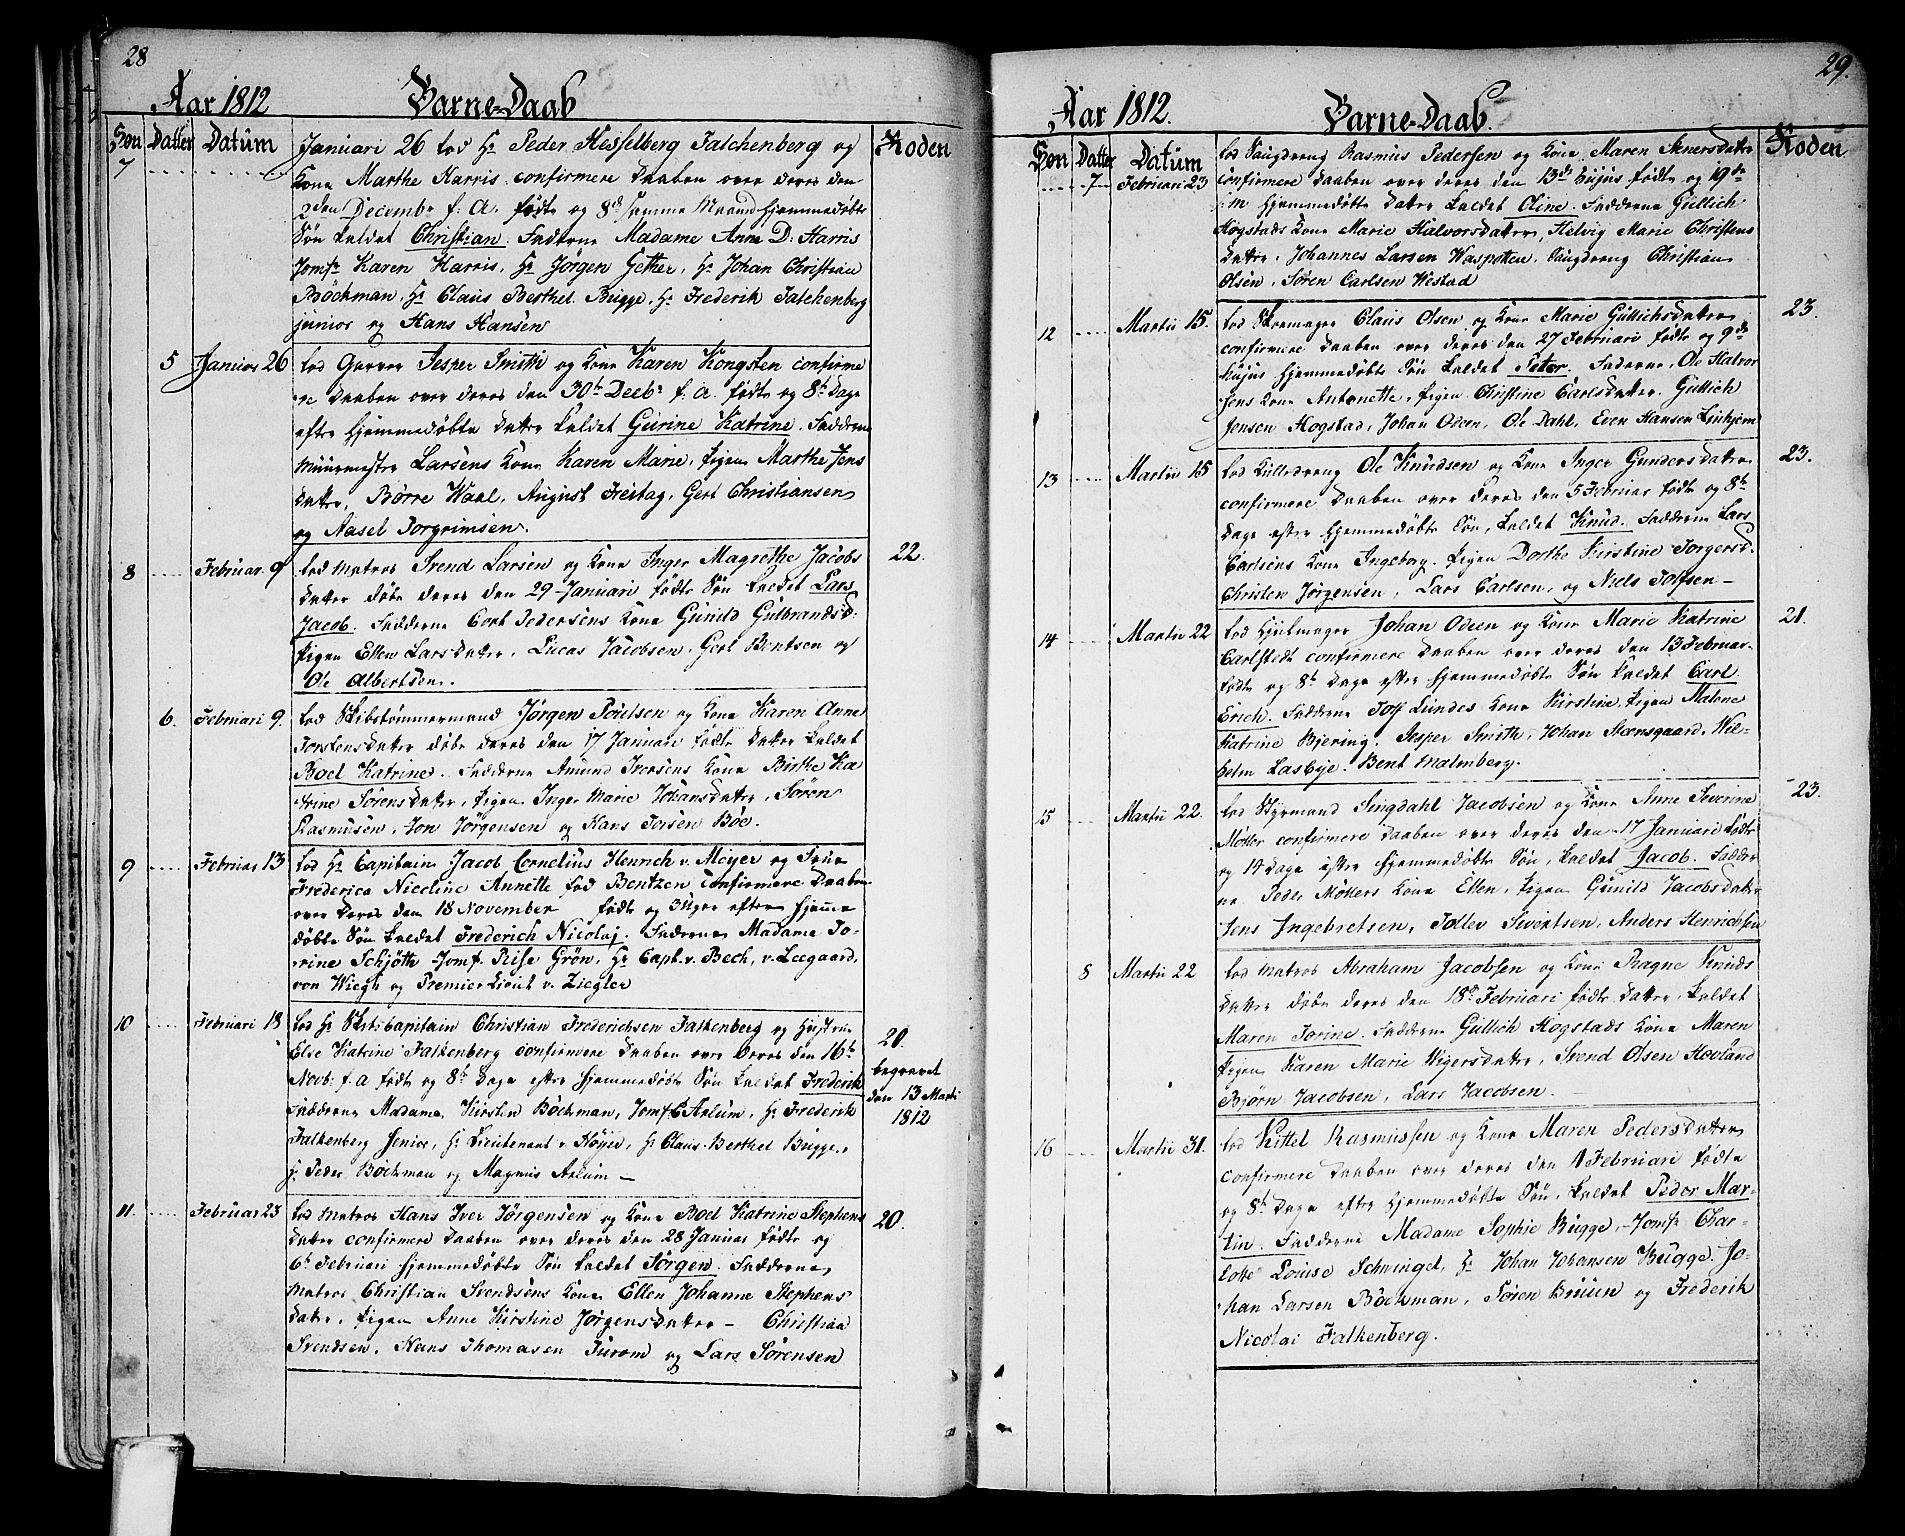 28
Aar 1812 Barne-Daab
Søn Datter Datum Roden
7 Januari 26 lod Hr Peder Hesselberg Falchenberg og
Kone Marthe Harris confirmere Daaben over deres den
2den Decembr f. A. fødte og 8de samme Maaned hjemmedøbte
Søn kaldet Christian. Fadderne Madame Anne D: Harris
Jomfr Karen Harris, Hr Jørgen Gether, Hr Johan Christian
Böckman, Hr Claus Berthel Bugge, Hr Frederik Falchenberg
junior og Hans Hansen
5 Januar 26 lod Garver Jesper Smith og Kone Karen Kongsten confirme
re Daaben over deres den 30te Decbr f. a. fødte og 8te Dage
efter hjemmedøbte Datter kaldet Gurine Katrine. Fadderne
Muurmester Larsens Kone Karen Marie, Pigen Marthe Jens
datter, Børre Waal, August Freitag, Gert Christiansen
og Aasel Torgrimsen.
8 Februar 9 lod Matros Svend Larsen og Kone Inger Magrethe Jacobs 22.
datter døbe deres den 29 Januari fødte Søn kaldet Lars
Jacob. Fadderne Cort Pedersens Kone Gunild Gulbrandsd:
Pigen Ellen Larsdatter, Lucas Jacobsen, Gert Bentsen og
Ole Albertsen.
6. Februari 9. lod Skibstømmermand Jørgen Povelsen og Kone Karen Anne
Torstensdatter døbe deres den 17 Januari fødte Datter kaldet
Boel Katrine. Fadderne Amund Iversens Kone Birthe Ka
trine Sørensdatter, Pigen Inger Marie Johansdatter, Søren
Rasmusen, Jon Jørgensen og Hans Torsen Böe.
9 Februar 13 lod Hr Capitain Jacob Cornelius Henrich v. Meyer og Frue
Frederica Nicoline Annette fød Bentzen confirmere Daaben
over deres den 18 November fødte og 3 Uger efter hjemme
døbte Søn kaldet Frederich Nicolaj. Fadderne Madame To-
rine Schjøth Jomf. Reise Grön, Hr Capt. v. Bech, v. Leegaard,
von Wiegh og Premier Lieut v. Ziegler
10 Februari 18 lod Hr Skibscapitain Christian Frederichsen Falkenberg og Hustrue 20.
Else Katrine Falkenberg confirmere Daaben over deres den 16te begravet
Novb: f. a fødte og 8te Dage efter hjemmedøbte Søn kaldet Frederik den 13 Marti
Fadderne Madame Kirsten Böckman, Jomf C Arlum, Hr Frederik 1812
Falkenberg Senior, Hr Lieutenant v Höyer, Hr Claus Berthel Bugge,
j. Peder Böckman og Magnus Arlum —
11. Februar 23 lod Matros Hans Iver Jørgensen og Kone Boel Katrine Stephens 20.
datter confirmere Daaben over deres den 28 Januar fødte og
6te Februari hjemmedøbte Søn kaldet Jørgen. Fadderne
Matros Christian Svendsens Kone Ellen Johanne Stephens
datter, Pigen Anne Kirstine Jørgensdatter — Christian
Svendsen, Hans Thomasen Furom og Lars Sørensen
29.
Aar 1812. Barne-Daab.
Søn Datter Datum Roden
7 Februari 23 lod Saugdreng Rasmus Pedersen og Kone Maren Asmersdatter
confirmere Daaben over deres den 13de hujus fødte og 19de
s: m hjemmedøbte Datter kaldet Oline. Fadderne Gullich
Hogstads Kone Marie Halvorsdatter, Helvig Marie Christens
datter, Johannes Larsen Waspoten, Saugdreng Christian
Olsen, Søren Carlsen Westad
12 Martii 15. lod Skoemager Claus Olsen og Kone Marie Gullichsdatter 23.
confirmere Daaben over deres den 27 Februari fødte og 9de
hujus hjemmedøbte Søn kaldet Peter. Fadderne, Ole Halvor
sens Kone Antonette, Pigen Christine Carlsdatter. Gullich
Jensen Hogstad, Johan Odeen, Ole Dahl, Even Hansen Linhjem
13 Martii 15 lod Kullsdreng Ole Knudsen og Kone Inger Gundersdatter 23.
confirmere Daaben over deres den 5 Februar fødte og 8te
Dage efter hjemmedøbte Søn, kaldet Knud. Fadderne Lars
Carlsens Kone Ingeborg, Pigen Dorthe Kirstine Torgersd.
Christen Jørgensen, Lars Carlsen, og Niels Tolfsen —
14 Martii 22 lod Hjulmager Johan Odeen og Kone Marie Katrine 21.
Carlstedt confirmere Daaben over deres den 13 Februar
fødte og 8te Dage efter hjemmedøbte Søn kaldet Carl
Erich. Fadderne Tolf Lundes Kone Kirstine, Pigen Malene
Katrine Bjering. Jesper Smith, Johan Stensgaard. Wil-
helm Lasbye. Bent Malmberg.
15 Martii 22. lod Styrmand Singdahl Jacobsen og Kone Anne Severine 23.
Möller confirmere Daaben over deres den 17 Januari fødte
og 14 Dage efter hjemmedøbte Søn, kaldet Jacob. Fadder
ne Peder Möllers Kone Ellen, Pigen Gunild Jacobsdatter
Jens Ingebretsen, Tollev Siventsen, Anders Henrichsen
8 Martii 22 lod Matros Abraham Jacobsen og Kone Ragne Knuds
datter døbe deres den 18de Februari fødte Datter, kaldet
Maren Torine. Fadderne Gullich Hogstads Kone Maren
Pigen Karen Marie Wigersdatter, Svend Olsen Hovland
Bjørn Jacobsen, Lars Jacobsen.
16 Martii 31. lod Kittel Rasmussen og Kone Maren Pedersdatter
confirmere Daaben over deres den 1 Februari fødte
og 8te Dage efter hjemmedøbte Søn, kaldet Peder Mar-
tin. Fadderne Madame Sophie Bugge, Jomfr Char-
lotte Louise Schwingel, Hr Johan Johansen Bugge. Jo-
han Larsen Böckman, Søren Bruun og Frederik
Nicolai Falkenberg.